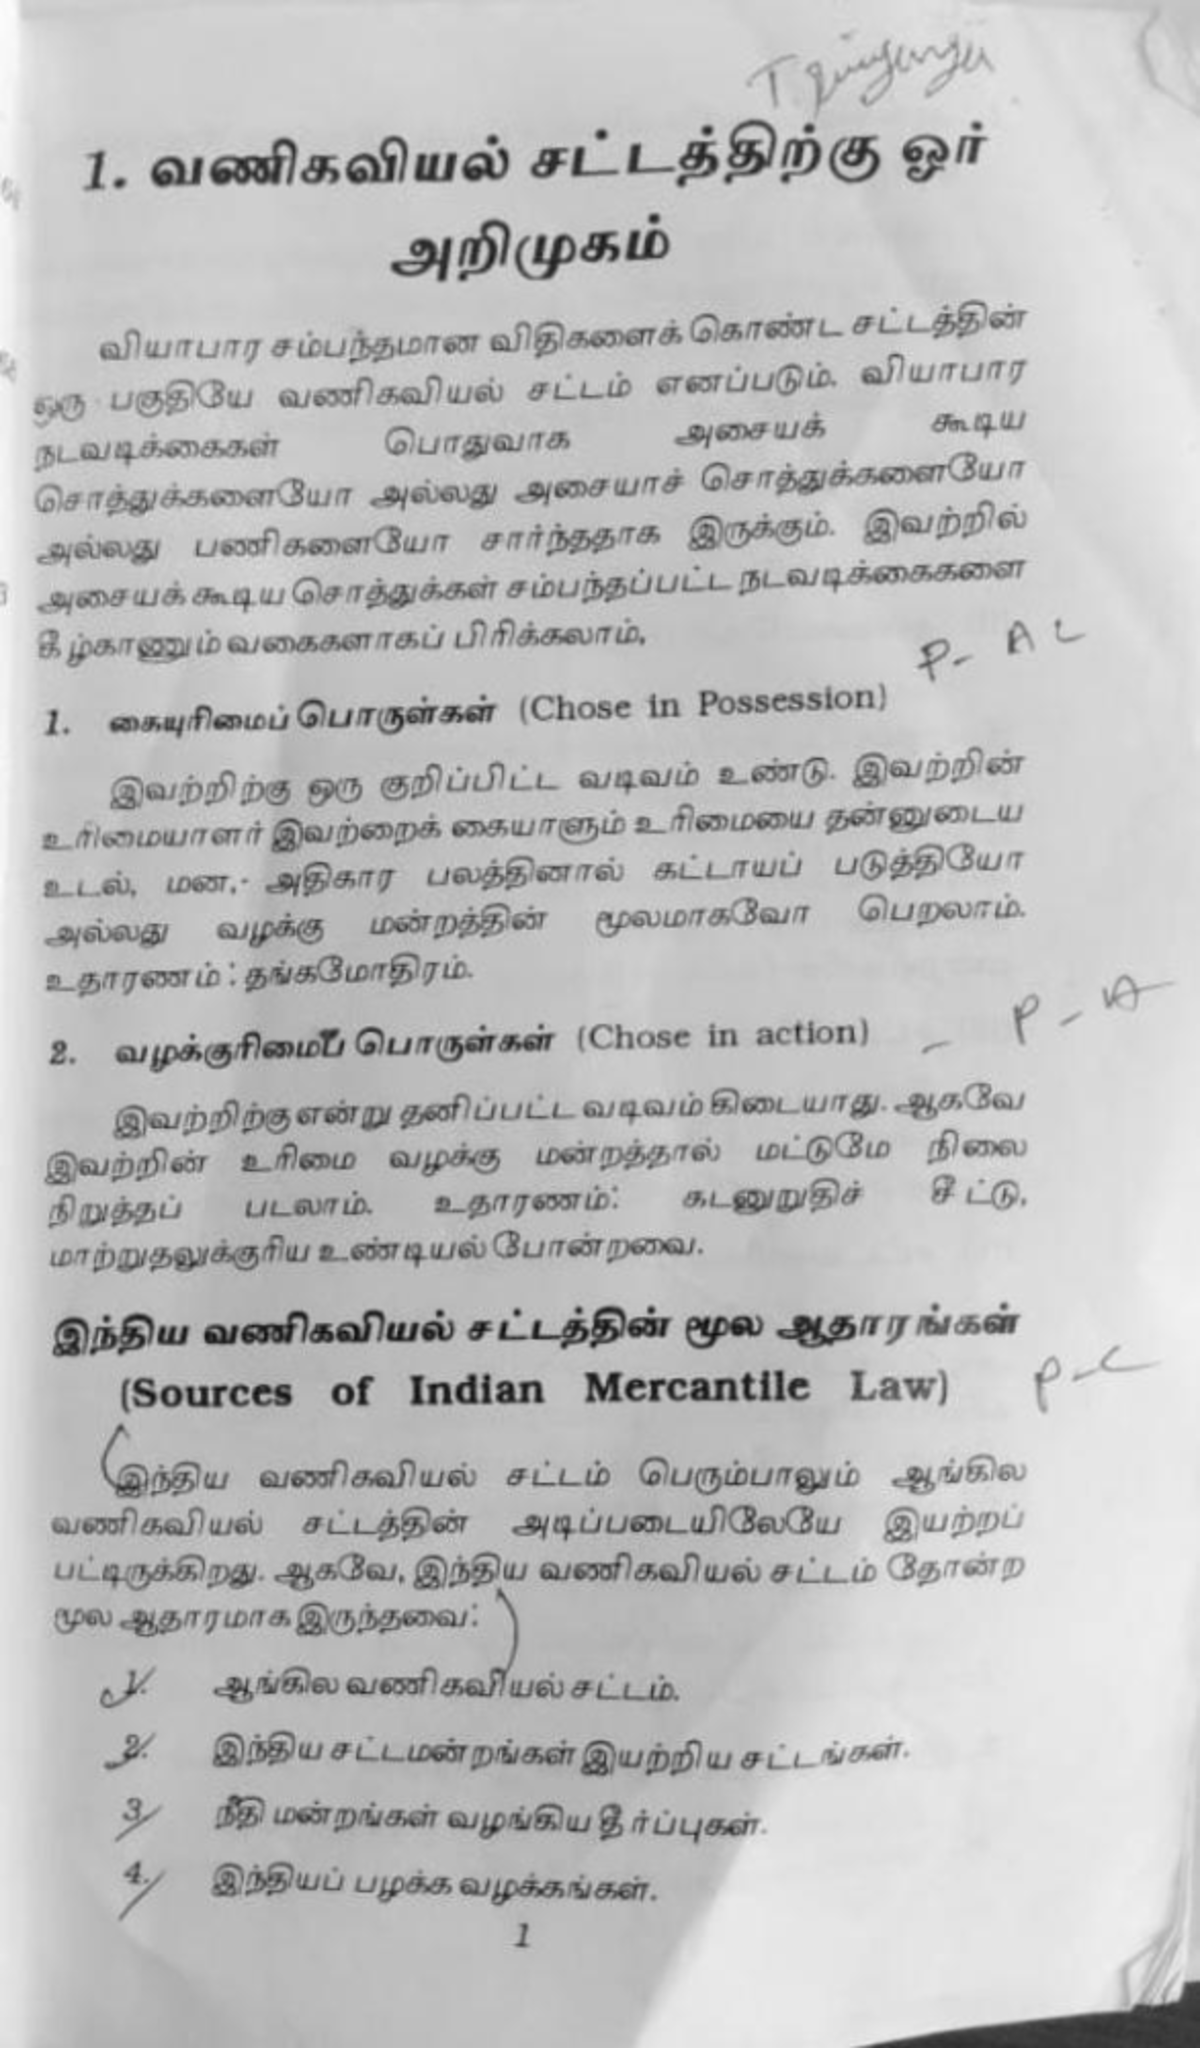 1. வணிகவியல் சட்டத்திற்கு ஓர்
அறிமுகம்
வியாபார சம்பந்தமான விதிகளைக் கொண்ட சட்டத்தின்
ஒரு பகுதியே வணிகவியல் சட்டம் எனப்படும். வியாபார
நடவடிக்கைகள் பொதுவாக அசையக் கூடிய
சொத்துக்களையோ அல்லது அசையாச் சொத்துக்களையோ
அல்லது பணிகளையோ சார்ந்ததாக இருக்கும். இவற்றில்
அசையக் கூடிய சொத்துக்கள் சம்பந்தப்பட்ட நடவடிக்கைகளை
கீழ்காணும் வகைகளாகப் பிரிக்கலாம்.
P- A L
1. கையுரிமைப் பொருள்கள் (Chose in Possession)
இவற்றிற்கு ஒரு குறிப்பிட்ட வடிவம் உண்டு. இவற்றின்
உரிமையாளர் இவற்றைக் கையாளும் உரிமையை தன்னுடைய
உடல், மன,- அதிகார பலத்தினால் கட்டாயப் படுத்தியோ
அல்லது வழக்கு மன்றத்தின் மூலமாகவோ பெறலாம்.
உதாரணம் : தங்கமோதிரம்.
2. வழக்குரிமைப் பொருள்கள் (Chose in action) - P - A
இவற்றிற்கு என்று தனிப்பட்ட வடிவம் கிடையாது. ஆகவே
இவற்றின் உரிமை வழக்கு மன்றத்தால் மட்டுமே நிலை
நிறுத்தப் படலாம். உதாரணம்: கடனுறுதிச் சீட்டு,
மாற்றுதலுக்குரிய உண்டியல் போன்றவை.
இந்திய வணிகவியல் சட்டத்தின் மூல ஆதாரங்கள்
(Sources of Indian Mercantile Law) P-C
இந்திய வணிகவியல் சட்டம் பெரும்பாலும் ஆங்கில
வணிகவியல் சட்டத்தின் அடிப்படையிலேயே இயற்றப்
பட்டிருக்கிறது. ஆகவே, இந்திய வணிகவியல் சட்டம் தோன்ற
மூல ஆதாரமாக இருந்தவை:
1. ஆங்கில வணிகவியல் சட்டம்.
2. இந்திய சட்டமன்றங்கள் இயற்றிய சட்டங்கள்.
3. நீதி மன்றங்கள் வழங்கிய தீர்ப்புகள்.
4. இந்தியப் பழக்க வழக்கங்கள்.
1